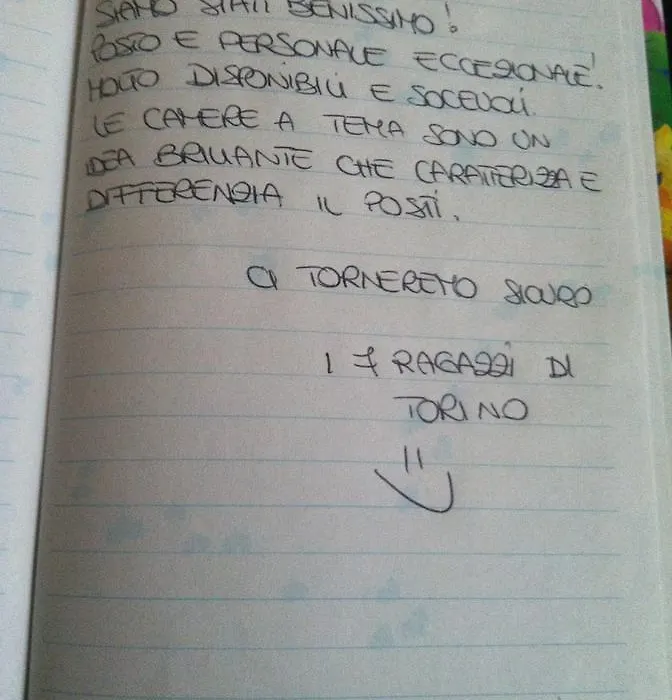 SIAMO STATI BENISSIMO!
POSTO E PERSONALE ECCEZIONALE!
MOLTO DISPONIBILI E SOCEVOLI.
LE CAMERE A TEMA SONO UN
IDEA BRILLANTE CHE CARATTERIZZA E
DIFFERENZIA IL POSTI.
CI TORNEREMO SICURO
I 7 RAGAZZI DI
TORINO